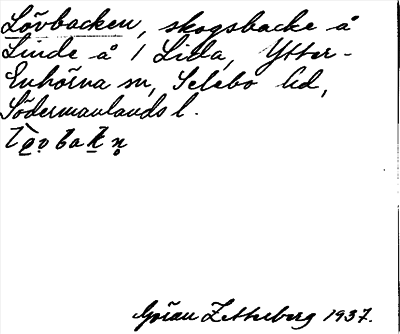 Lövbacken, skogsbacke å
Linde å 1 Lilla, Ytter-
Enhörna sn, Selebo hd,
Södermanlands l.
Göran Zetterberg 1937.